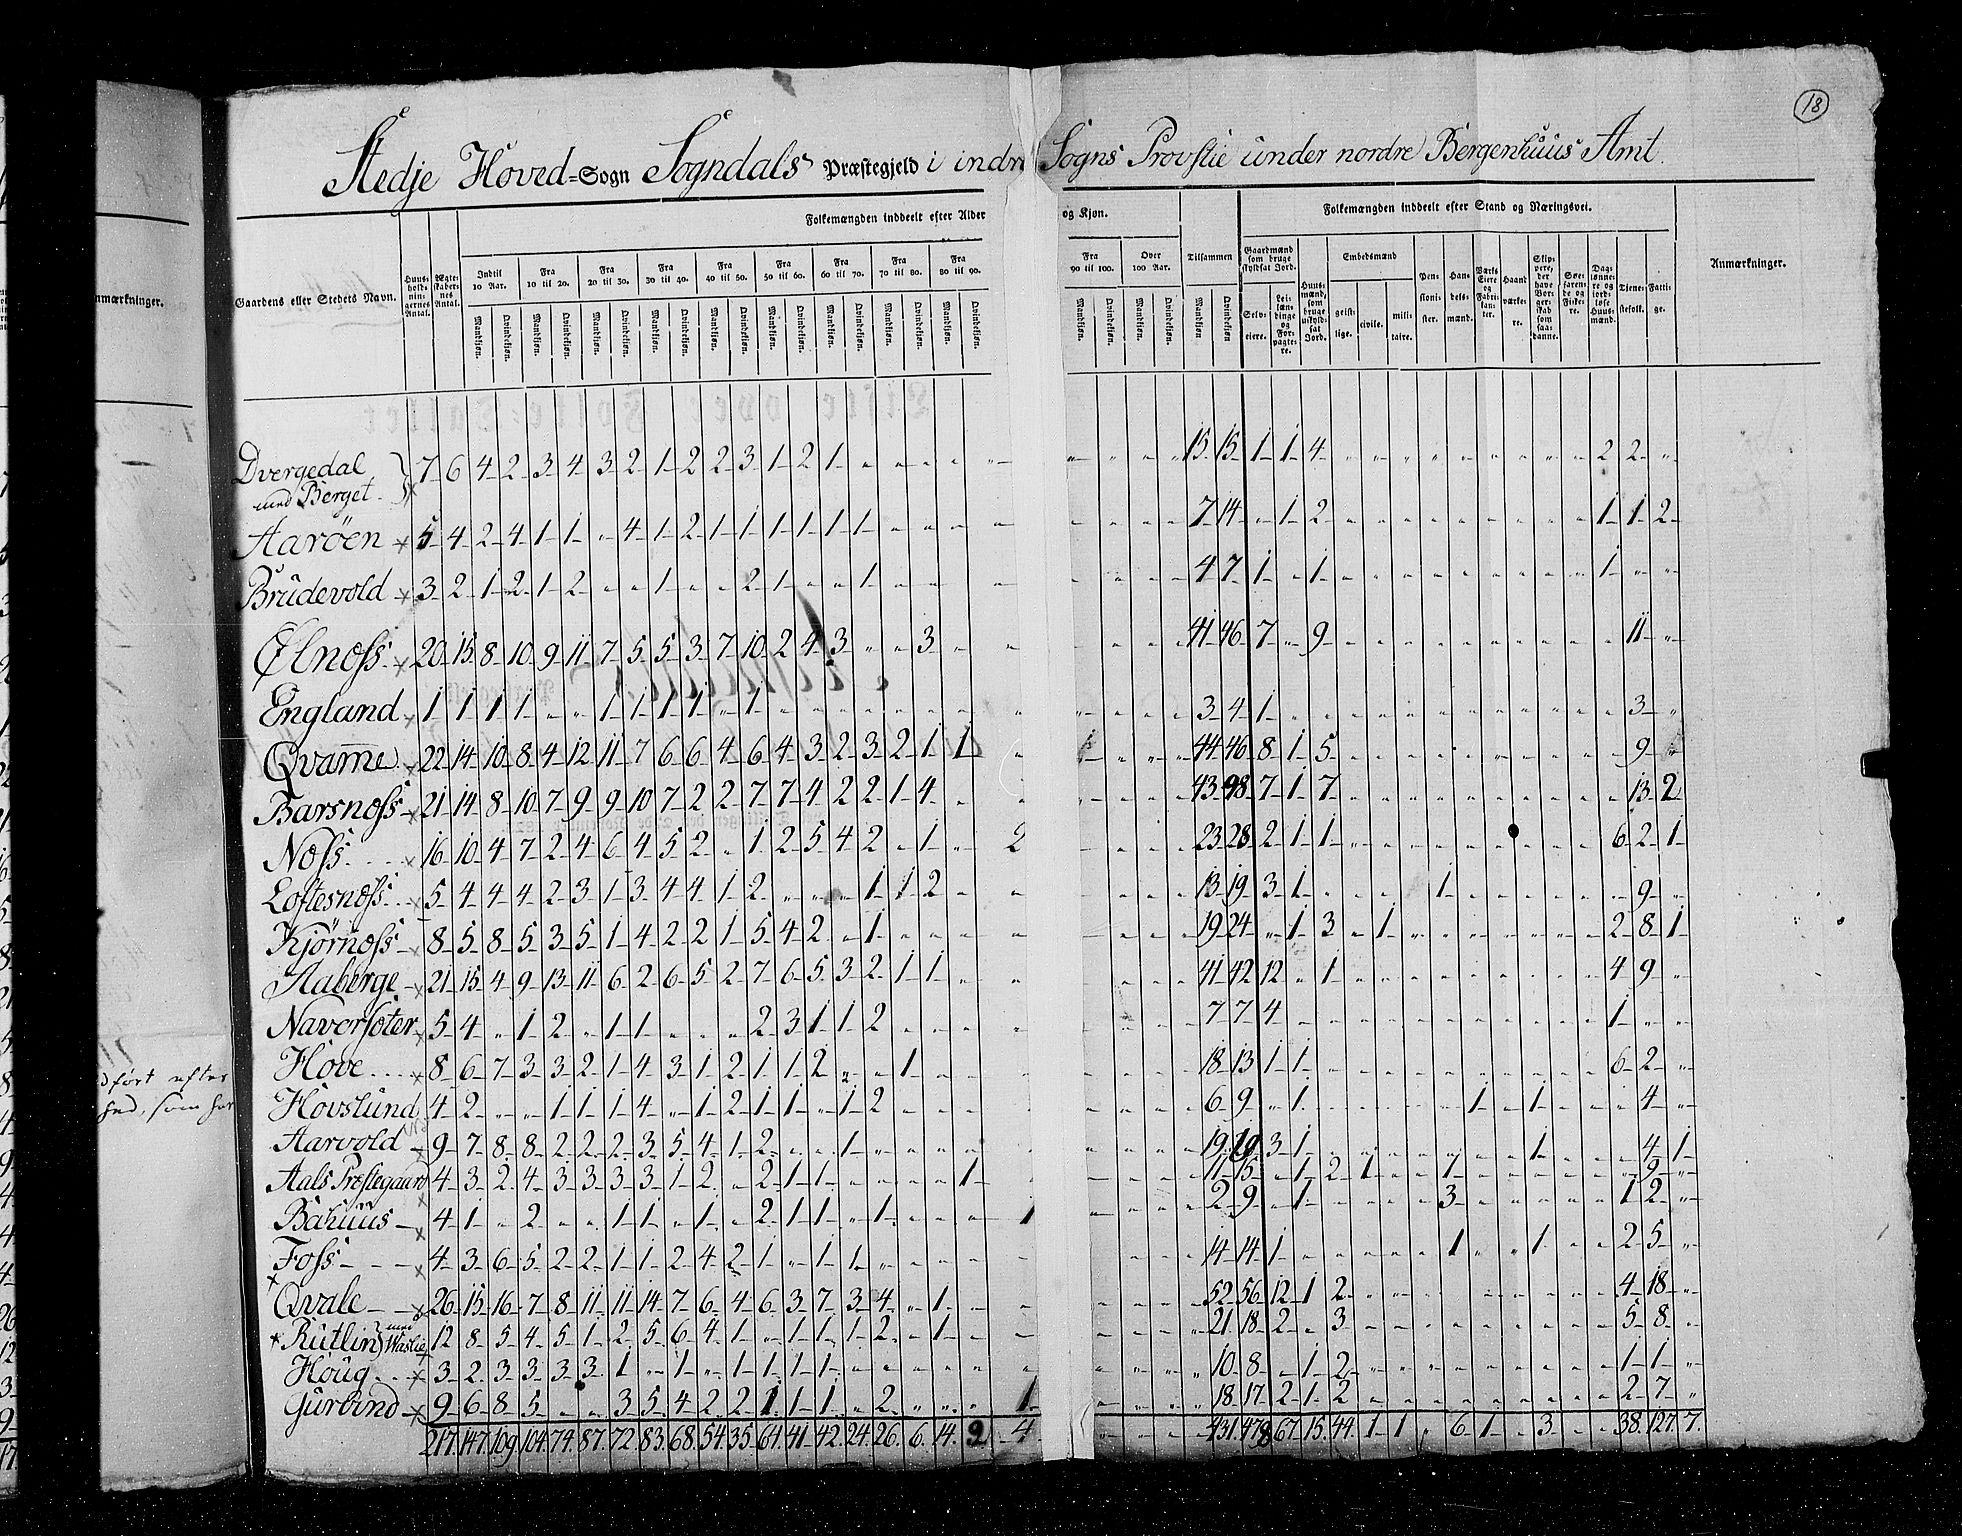 18
Stedje Hoved=Sogn Sogndals Præstegjeld i indre Sogns Provstie under nordre Bergenhuus Amt.
Folkemængden inddeelt efter Alder og Kjøn. Folkemængden inddeelt efter Stand og Næringsvei.
Gaardens eller Stedets Navn. Huus-holdnin-gernes Antal. Ægte-skaber-nes Antal. Indtil 10 Aar. Fra 10 til 20. Fra 20 til 30. Fra 30 til 40. Fra 40 til 50. Fra 50 til 60. Fra 60 til 70. Fra 70 til 80. Fra 80 til 90. Fra 90 til 100. Over 100 Aar. Tilsammen Gaardmænd som bruge skyldsat Jord. Huus-mænd, som bruge uskyld-sat Jord. Embedsmænd Pen-sioni-ster. Han-dels-mænd. Værks Eiere og Fabri-kan-ter. Haand værke-re. Skip-pere, der have Bor-ger-skab som saa-danne. Søe-farende og Fiske-re. Dag-lønne-re og jord-løse Huus-mænd. Tjene-stefolk. Fatti-ge. Anmærkninger.
Mandkjøn. Qvindekjøn. Selv-eiere. Lei-læn-dinge og For-pagte-re. geist-lige. civile. mili-taire.
Dvergedal med Berget 7 6 4 2 3 4 3 2 1 2 2 3 1 2 1 15 15 1 1 4 2 2
Aarøen 5 4 2 4 1 1 4 1 2 1 1 1 1 1 1 7 14 1 2 1 1 2
Brudevold 3 2 1 2 1 2 1 2 1 1 4 7 1 1 1
Ølness 20 15 8 10 9 11 7 5 5 3 7 10 2 4 3 3 41 46 7 9 11
England 1 1 1 1 1 1 1 1 1 3 4 1 3
Qvamme 22 14 10 8 4 12 11 7 6 6 4 6 4 3 2 3 2 1 1 44 46 8 1 5 9
Barsness 21 14 8 10 7 9 9 10 7 2 2 7 7 4 2 2 1 4 43 48 7 1 7 13 2
Næss 16 10 4 7 2 4 6 4 5 2 1 2 5 4 2 1 2 23 28 2 1 1 6 2 1
Loftesness 5 4 4 4 2 3 1 3 4 4 1 2 1 1 2 13 19 3 1 1 9
Kjørness 8 5 8 5 3 5 1 4 2 2 1 5 4 2 1 19 24 1 3 1 2 8 1
Aaberge 21 15 4 9 13 11 6 2 6 5 2 7 6 5 3 2 1 1 41 42 12 1 4 9
Navarsæter 5 4 1 2 1 1 2 3 1 1 2 7 7 4 1
Hove 8 6 7 3 3 2 1 4 3 1 2 1 1 2 1 18 13 1 1 6 2
Hovslund 4 2 1 1 1 4 1 2 1 1 1 2 6 9 1 1 1 4
Aarvold 9 7 8 8 2 2 2 3 5 4 1 2 1 19 19 3 1 1 4 1
Aals Præstegaard 4 3 2 4 3 3 3 3 1 2 2 1 1 1 11 15 1 2 1 1 9
Bahuus 4 1 2 1 1 1 2 1 1 1 1 2 9 1 3 1 2
Foss 4 3 6 5 2 2 1 1 2 4 2 1 1 1 14 14 1 1 1 2 5
Qvale 26 15 16 7 8 11 11 14 7 6 4 6 3 7 3 4 1 52 56 12 1 2 4 18
Rutlin med 12 8 5 4 5 1 2 5 6 4 1 1 1 1 2 1 21 18 2 3 5 8
Houg 3 2 3 3 3 3 1 1 1 1 1 1 10 8 1 2 1 1
Gurvind 9 6 8 5 3 5 4 2 2 1 1 1 2 1 18 17 2 1 2 2 7
217. 147. 109. 104. 74. 87. 72. 83. 68. 54. 35. 64. 41. 42. 24. 26. 6. 14. 2 4 431. 478 67. 15. 44. 1 1 6 1 3 38. 127. 7.